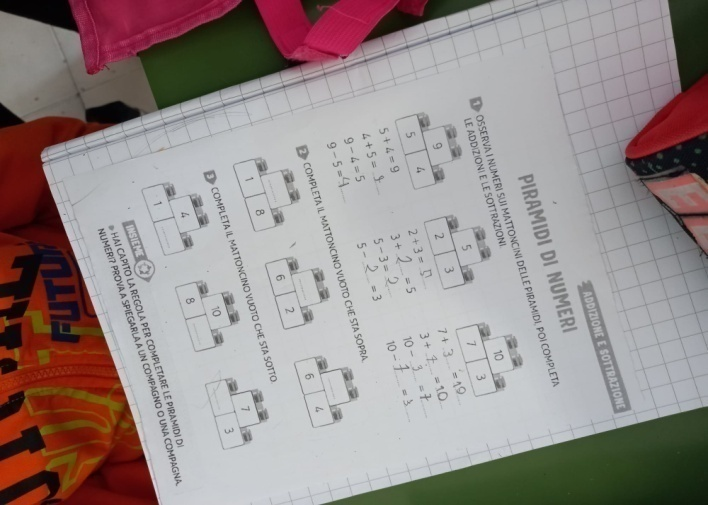 ADDIZIONE E SOTTRAZIONE
PIRAMIDI DI NUMERI
1 OSSERVA I NUMERI SUI MATTONCINI DELLE PIRAMIDI, POI COMPLETA
LE ADDIZIONI E LE SOTTRAZIONI.
9 5 10
5 4 2 3 7 3
5 + 4 = 9 2 + 3 = 5 7 + 3 = 10
4 + 5 = 9 3 + 2 = 5 3 + 7 = 10
9 - 4 = 5 5 - 3 = 2 10 - 3 = 7
9 - 5 = 4 5 - 2 = 3 10 - 7 = 3
2 COMPLETA IL MATTONCINO VUOTO CHE STA SOPRA.
1 8 6 2 6 4
3 COMPLETA IL MATTONCINO VUOTO CHE STA SOTTO.
4 10 7
1 8 3
INSIEME
HAI CAPITO LA REGOLA PER COMPLETARE LE PIRAMIDI DI
NUMERI? PROVA A SPIEGARLA A UN COMPAGNO O UNA COMPAGNA.